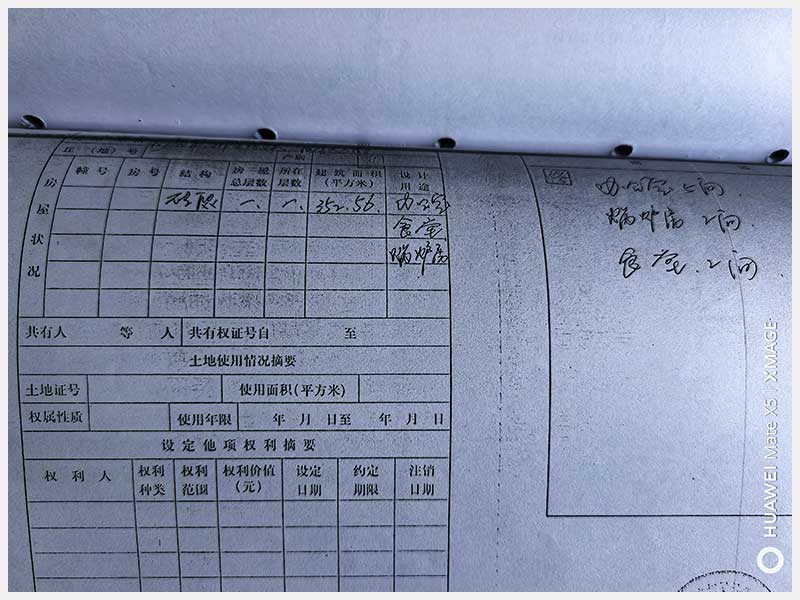 丘（地）号
产别
房屋状况
幢号 房号 结构 房屋总层数 所在层数 建筑面积（平方米） 设计用途
砖混 一. 一. 352.56. 办公室
食堂
锅炉房
共有人 等 人 共有权证号自 至
土地使用情况摘要
土地证号 使用面积(平方米)
权属性质 使用年限 年 月 日至 年 月 日
设定他项权利摘要
权利人 权利种类 权利范围 权利价值（元） 设定日期 约定期限 注销日期
办公室5间.
锅炉房 2间.
食堂. 2间
HUAWEI Mate X5 XMAGE